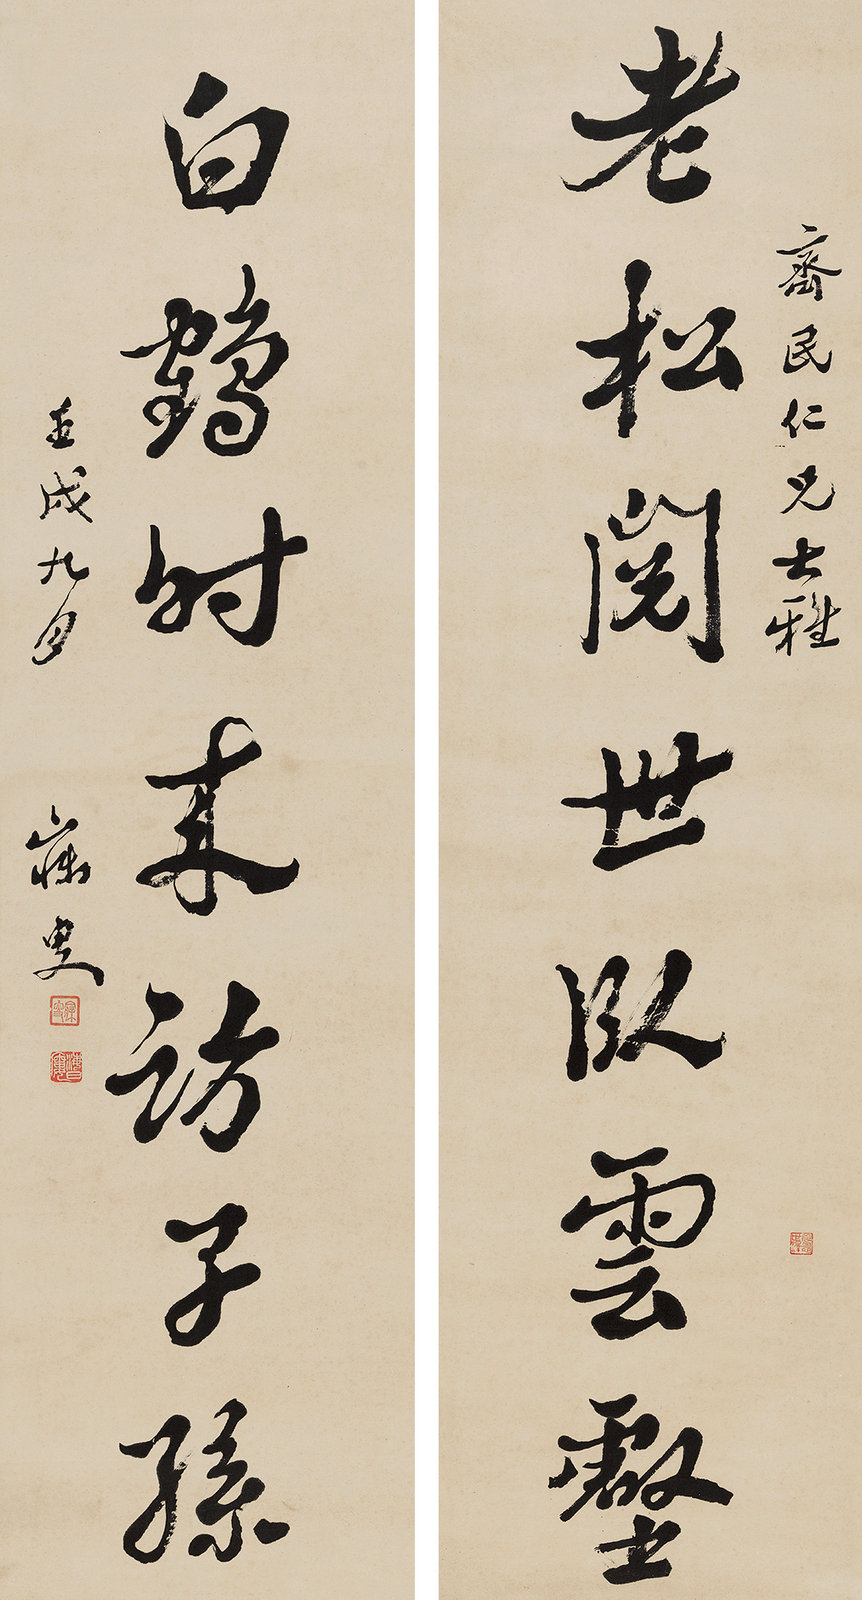 齋民仁兄大雅
老松閱世臥雲壑
白鶴時來訪子孫
壬戌九月 寐叟